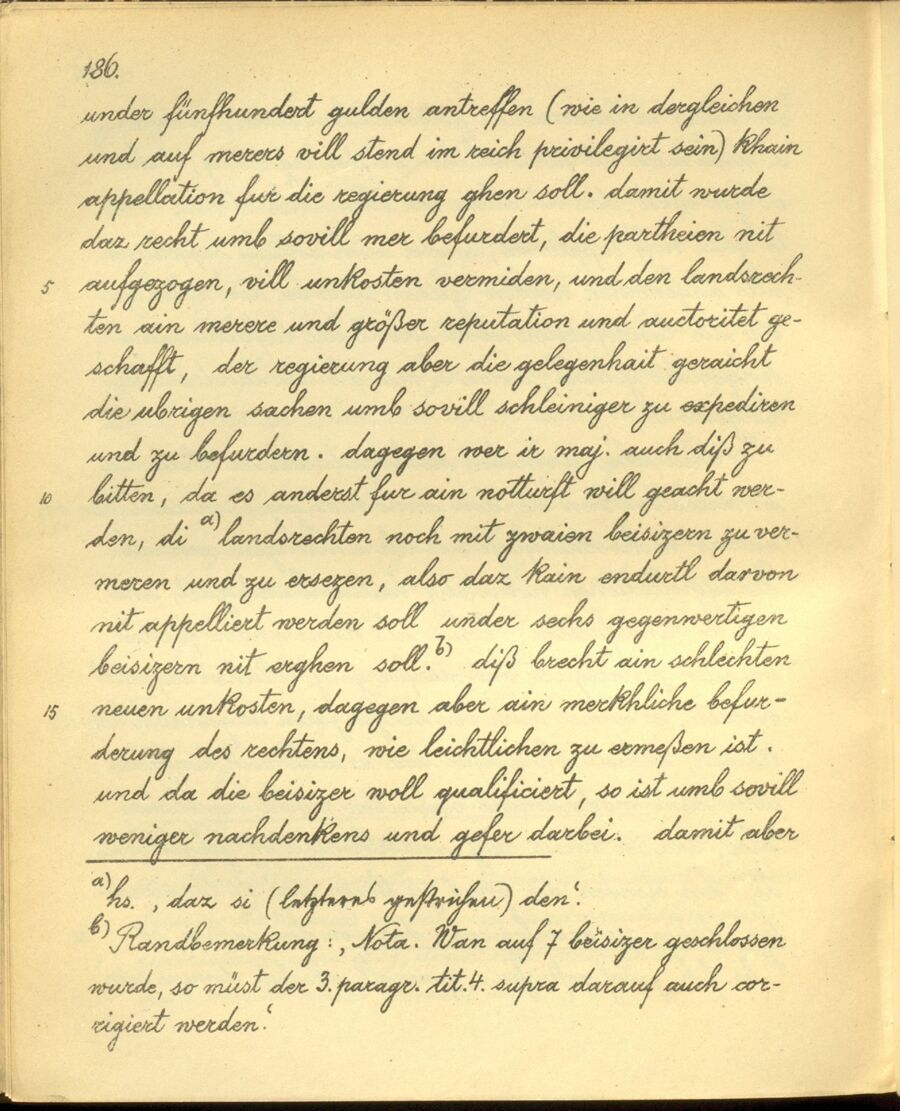 186.
under fünfhundert gulden antreffen (wie in dergleichen
und auf merers vill stend im reich privilegirt sein) khain
appellation fur die regierung ghen soll. damit wurde
daz recht umb sovill mer befurdert, die partheien nit
5 aufgezogen, vill unkosten vermiden, und den landsrech-
ten ain merere und größer reputation und auctoritet ge-
schafft, der regierung aber die gelegenhait geraicht
die ubrigen sachen umb sovill schleiniger zu expediren
und zu befurdern. dagegen wer ir maj. auch diß zu
10 bitten, da es anderst fur ain notturft will geacht wer-
den, di a) landsrechten noch mit zwaien beisizern zu ver-
meren und zu ersezen, also daz kain endurtl darvon
nit appelliert werden soll under sechs gegenwertigen
beisizern nit erghen soll. b) diß brecht ain schlechten
15 neuen unkosten, dagegen aber ain merkhliche befur-
derung des rechtens, wie leichtlichen zu ermeßen ist.
und da die beisizer woll qualificiert, so ist umb sovill
weniger nachdenkens und gefer darbei. damit aber
a) hs. ‚daz si (letzteres gestrichen) den‘.
b) Randbemerkung: ‚Nota. Wan auf 7 beisizer geschlossen
wurde, so müst der 3. paragr. tit. 4. supra darauf auch cor-
rigiert werden.‘